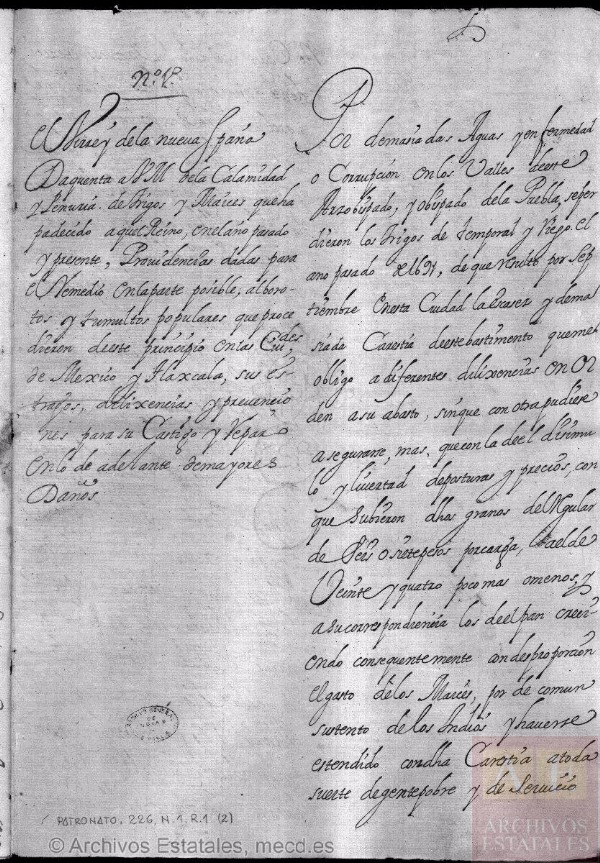 Nº 1º
El Virrey dela nueva españa
Da quenta a V.M. dela Calamidad
y Penuria de trigos y Maices que ha
padecido aquel Reino, en el año pasado
y presente, Providencias dadas para
el Remedio en la parte posible, alboro-
tos y tumultos populares que proce
dieron de este principio en las Ciudes
de Mexico y Tlaxcala, sus es-
tragos, dilixencias y prevencio
nes para su Castigo y Reparo
en lo de adelante de mayores
Daños
Por demasiadas Aguas y enfermedad
o Corrupcion en los Valles de este
Arzobispado, y obispado dela Puebla, se per
dieron los trigos de temporal y Riego el
año pasado de 1691, de que resulto por Sep
tiembre en esta Ciudad la escasez y dema
siada Carestia de este bastimento que me
obligo a diferentes dilixencias en or
den a su abasto, sin que con otra pudiese
asegurarse, mas, que con la de el disimu
lo y livertad de posturas y precios, con
que subieron dhos granos del Regular
de seis o siete pesos por carga, a el de
Veinte y quatro poco mas o menos, y
a su correspondiencia los de el pan creci-
endo consequentemente con desproporcion
el gasto de los Maices, por de comun
sustento de los Indios y haverse
estendido con dha Carestia a toda
suerte de gente pobre y de Servicio
PATRONATO, 226, N.1, R.1 (2)
© Archivos Estatales, mecd.es
ARCHIVOS
ESTATALES